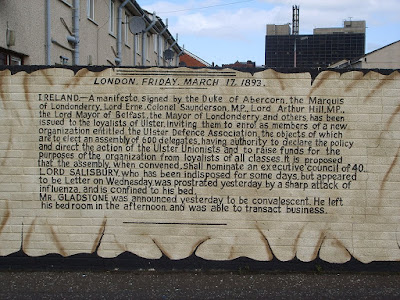 LONDON, FRIDAY, MARCH 17, 1893.
IRELAND.-A manifesto signed by the Duke of Abercorn, the Marquis
of Londonderry, Lord Erne, Colonel Saunderson, M.P., Lord Arthur Hill, M.P.,
the Lord Mayor of Belfast, the Mayor of Londonderry, and others, has been
issued to the loyalists of Ulster, inviting them to enrol as members of a new
organization entitled the Ulster Defence Association, the objects of which
are to elect an assembly of 600 delegates, having authority to declare the policy
and direct the action of the Ulster Unionists and to raise funds for the
purposes of the organization from loyalists of all classes. It is proposed
that the assembly, when convened, shall nominate an executive council of 40.
LORD SALISBURY, who has been indisposed for some days, but appeared
to be Letter on Wednesday, was prostrated yesterday by a sharp attack of
influenza, and is confined to his bed.
MR. GLADSTONE was announced yesterday to be convalescent. He left
his bed room in the afternoon, and was able to transact business.